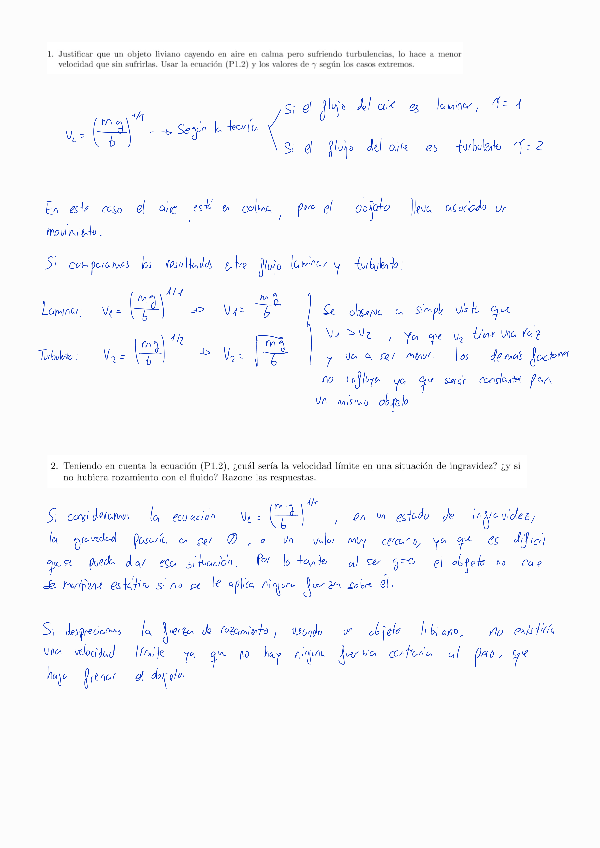 1. Justificar que un objeto liviano cayendo en aire en calma pero sufriendo turbulencias, lo hace a menor
velocidad que sin sufrirlas. Usar la ecuación (P1.2) y los valores de γ según los casos extremos.
Si el flujo del aire es laminar, γ = 1
V_L = (mg/b)^1/γ → Según la teoría
Si el flujo del aire es turbulento γ = 2
En este caso el aire está en calma, pero el objeto lleva asociado un
movimiento.
Si comparamos los resultados entre flujo laminar y turbulento.
Laminar: V₁ = (mg/b)^1/1 ⇒ V₁ = mg/b
Turbulento: V₂ = (mg/b)^1/2 ⇒ V₂ = √(mg/b)
Se observa a simple vista que
V₁ > V₂, ya que V₂ tiene una raz
y va a ser menor. Los demás factores
no influye ya que serán constante para
un mismo objeto
2. Teniendo en cuenta la ecuación (P1.2), ¿cuál sería la velocidad límite en una situación de ingravidez? ¿y si
no hubiera rozamiento con el fluido? Razone las respuestas.
Si consideramos la ecuación V_L = (mg/b)^1/γ, en un estado de ingravidez,
la gravedad pasaría a ser 0, o un valor muy cercano, ya que es difícil
que se pueda dar esa situación. Por lo tanto al ser g=0 el objeto no cae
se mantiene estático si no se le aplica ninguna fuerza sobre él.
Si despreciamos la fuerza de rozamiento, usando un objeto liviano, no existiría
una velocidad límite ya que no hay ninguna fuerza contraria al peso, que
haga frenar el objeto